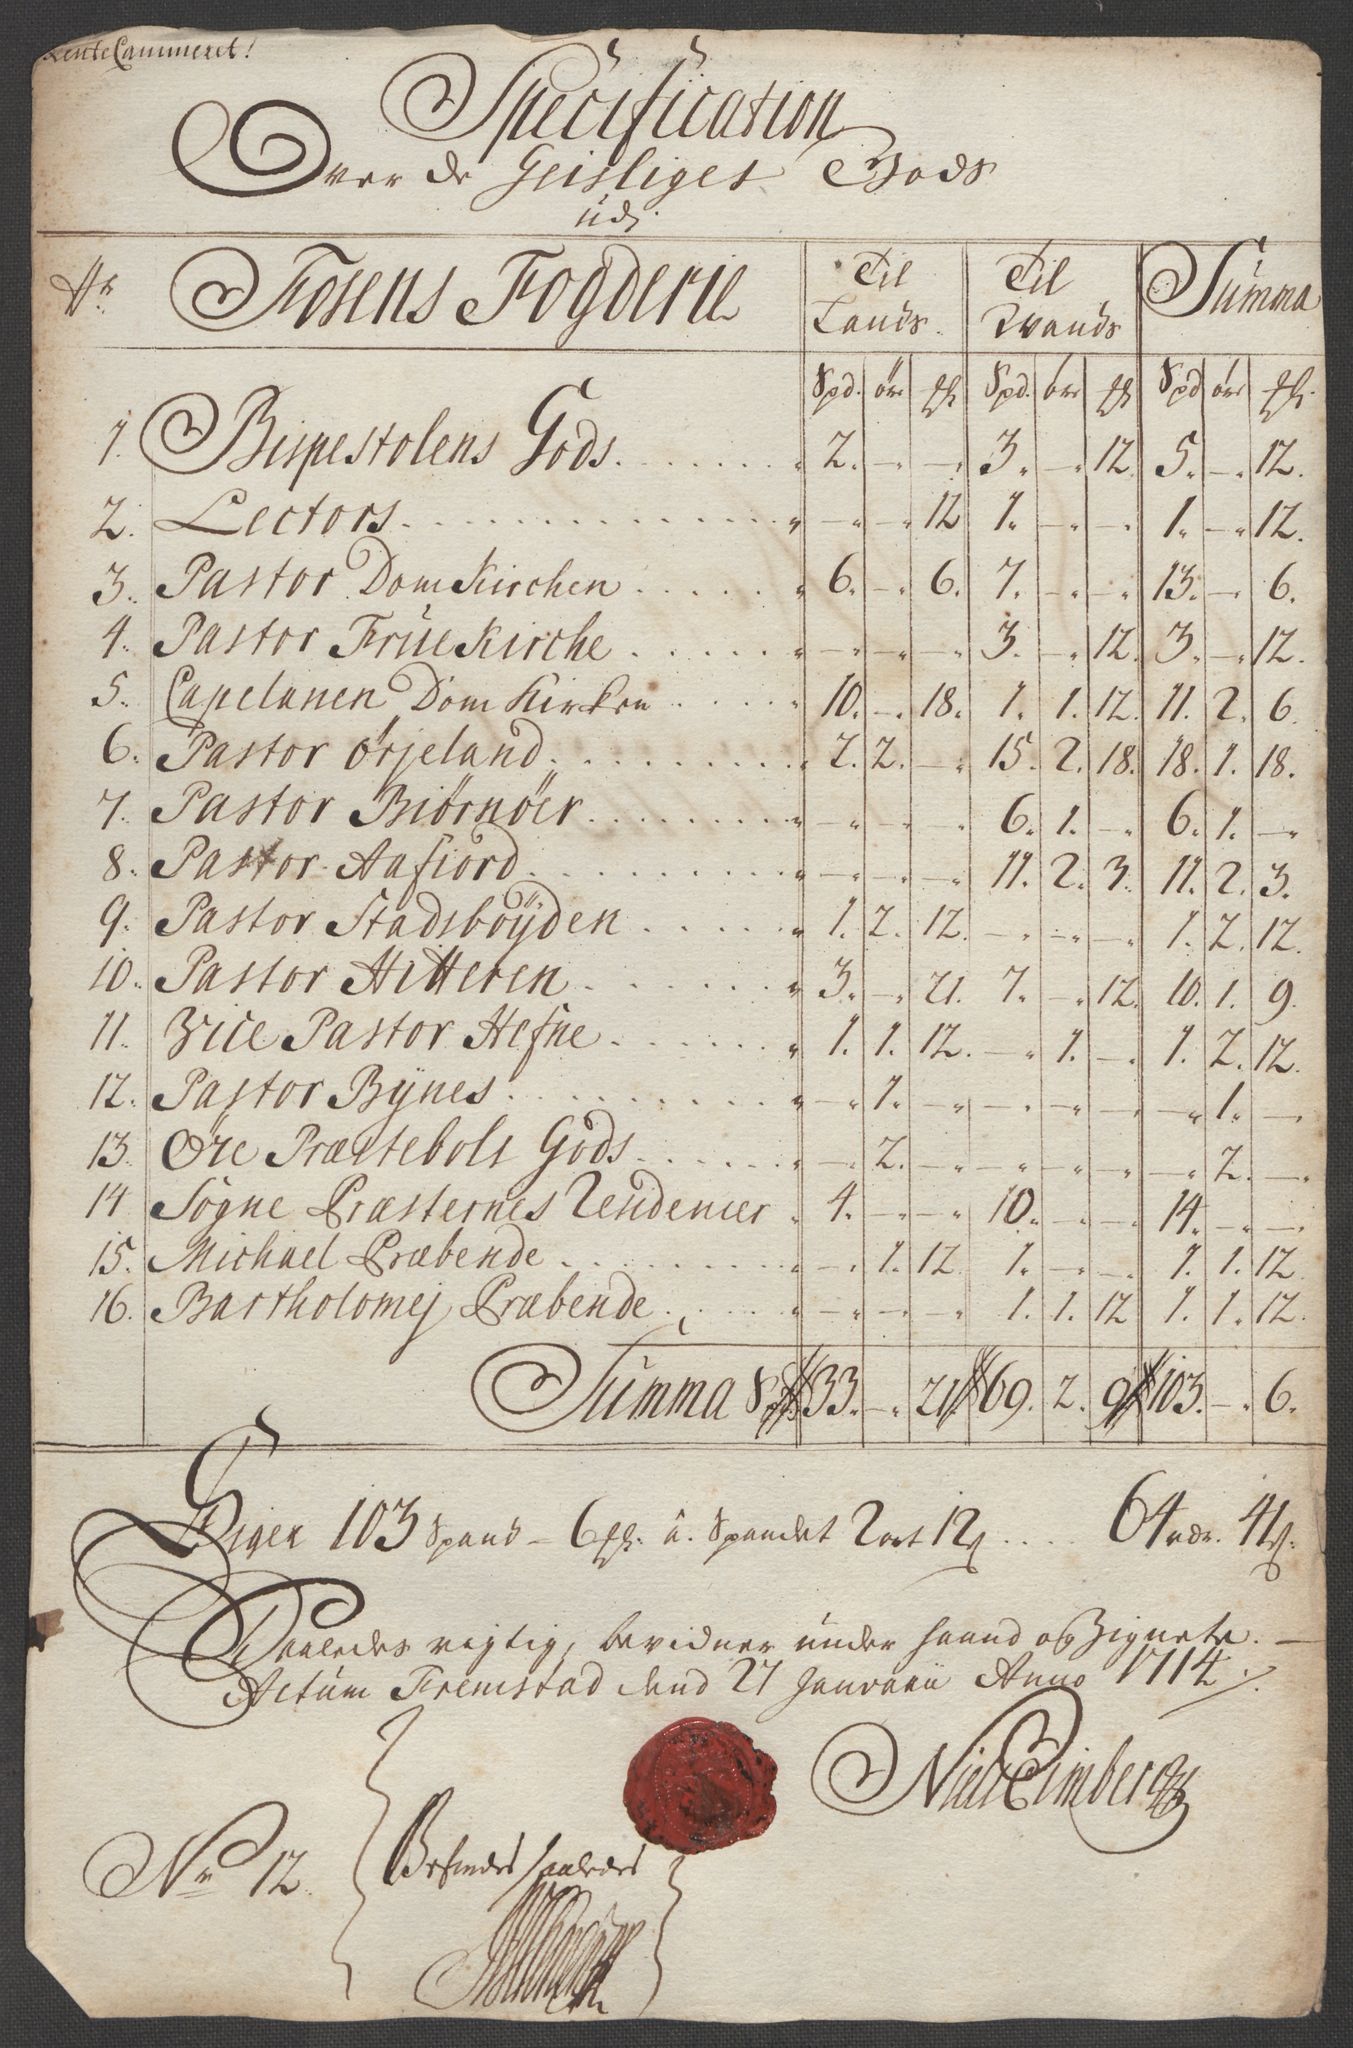 RenteCammeret!
Specification
Over de Geistliges Gods
udj
Nr. Fosens Fogderie Til Lands. Til Vands Summa
Spd. öre Spd. öre Spd öre
1. Bispestolens Gods. 2. — — 3. — 12. 5. — 12.
2. Lectors. — — 12 1. — — 1. — 12.
3. Pastor DomKirchen 6. — 6. 7. — — 13. — 6.
4. Pastor FrueKirche — — — 3. — 12. 3. — 12.
5. Capelanen Dom Kirken 10. — 18. 1. 1. 12. 11. 2. 6.
6. Pastor Ørjeland. 2. 2. — 15. 2. 18. 18. 1. 18.
7. Pastor Biörnöer — — — 6. 1. — 6. 1. —
8. Pastor Aafiord — — — 11. 2. 3. 11. 2. 3.
9. Pastor Stadsböyden 1. 2. 12. — — — 1. 2. 12.
10. Pastor Hitteren 3. — 21. 7. — 12. 10. 1. 9.
11. Vice Pastor Hefne 1. 1. 12. — 1. — 1. 2. 12.
12. Pastor Bÿnes — 1. — — — — — 1. —
13. Øre Præstebols Gods — 2. — — — — — 2. —
14 Sogne Præsternes Residencer 4. — — 10. — — 14. — —
15. Michael Præbende — 1. 12. 1. — — 1. 1. 12.
16. Bartholomej Præbende — — — 1. 1. 12 1. 1. 12.
Summa 33. — 21 69. 2. 9 103. — 6.
Siger 103 Spand – 6 à Spandet 2 ort 12 .... 64 rdr. 41
Saaledes rigtig, bevidner under Haand og Zignete. —
Actum Fremstad dend 27 Januarii Anno 1714
Niels Eimberg
Nr 12 Befindes saaledes